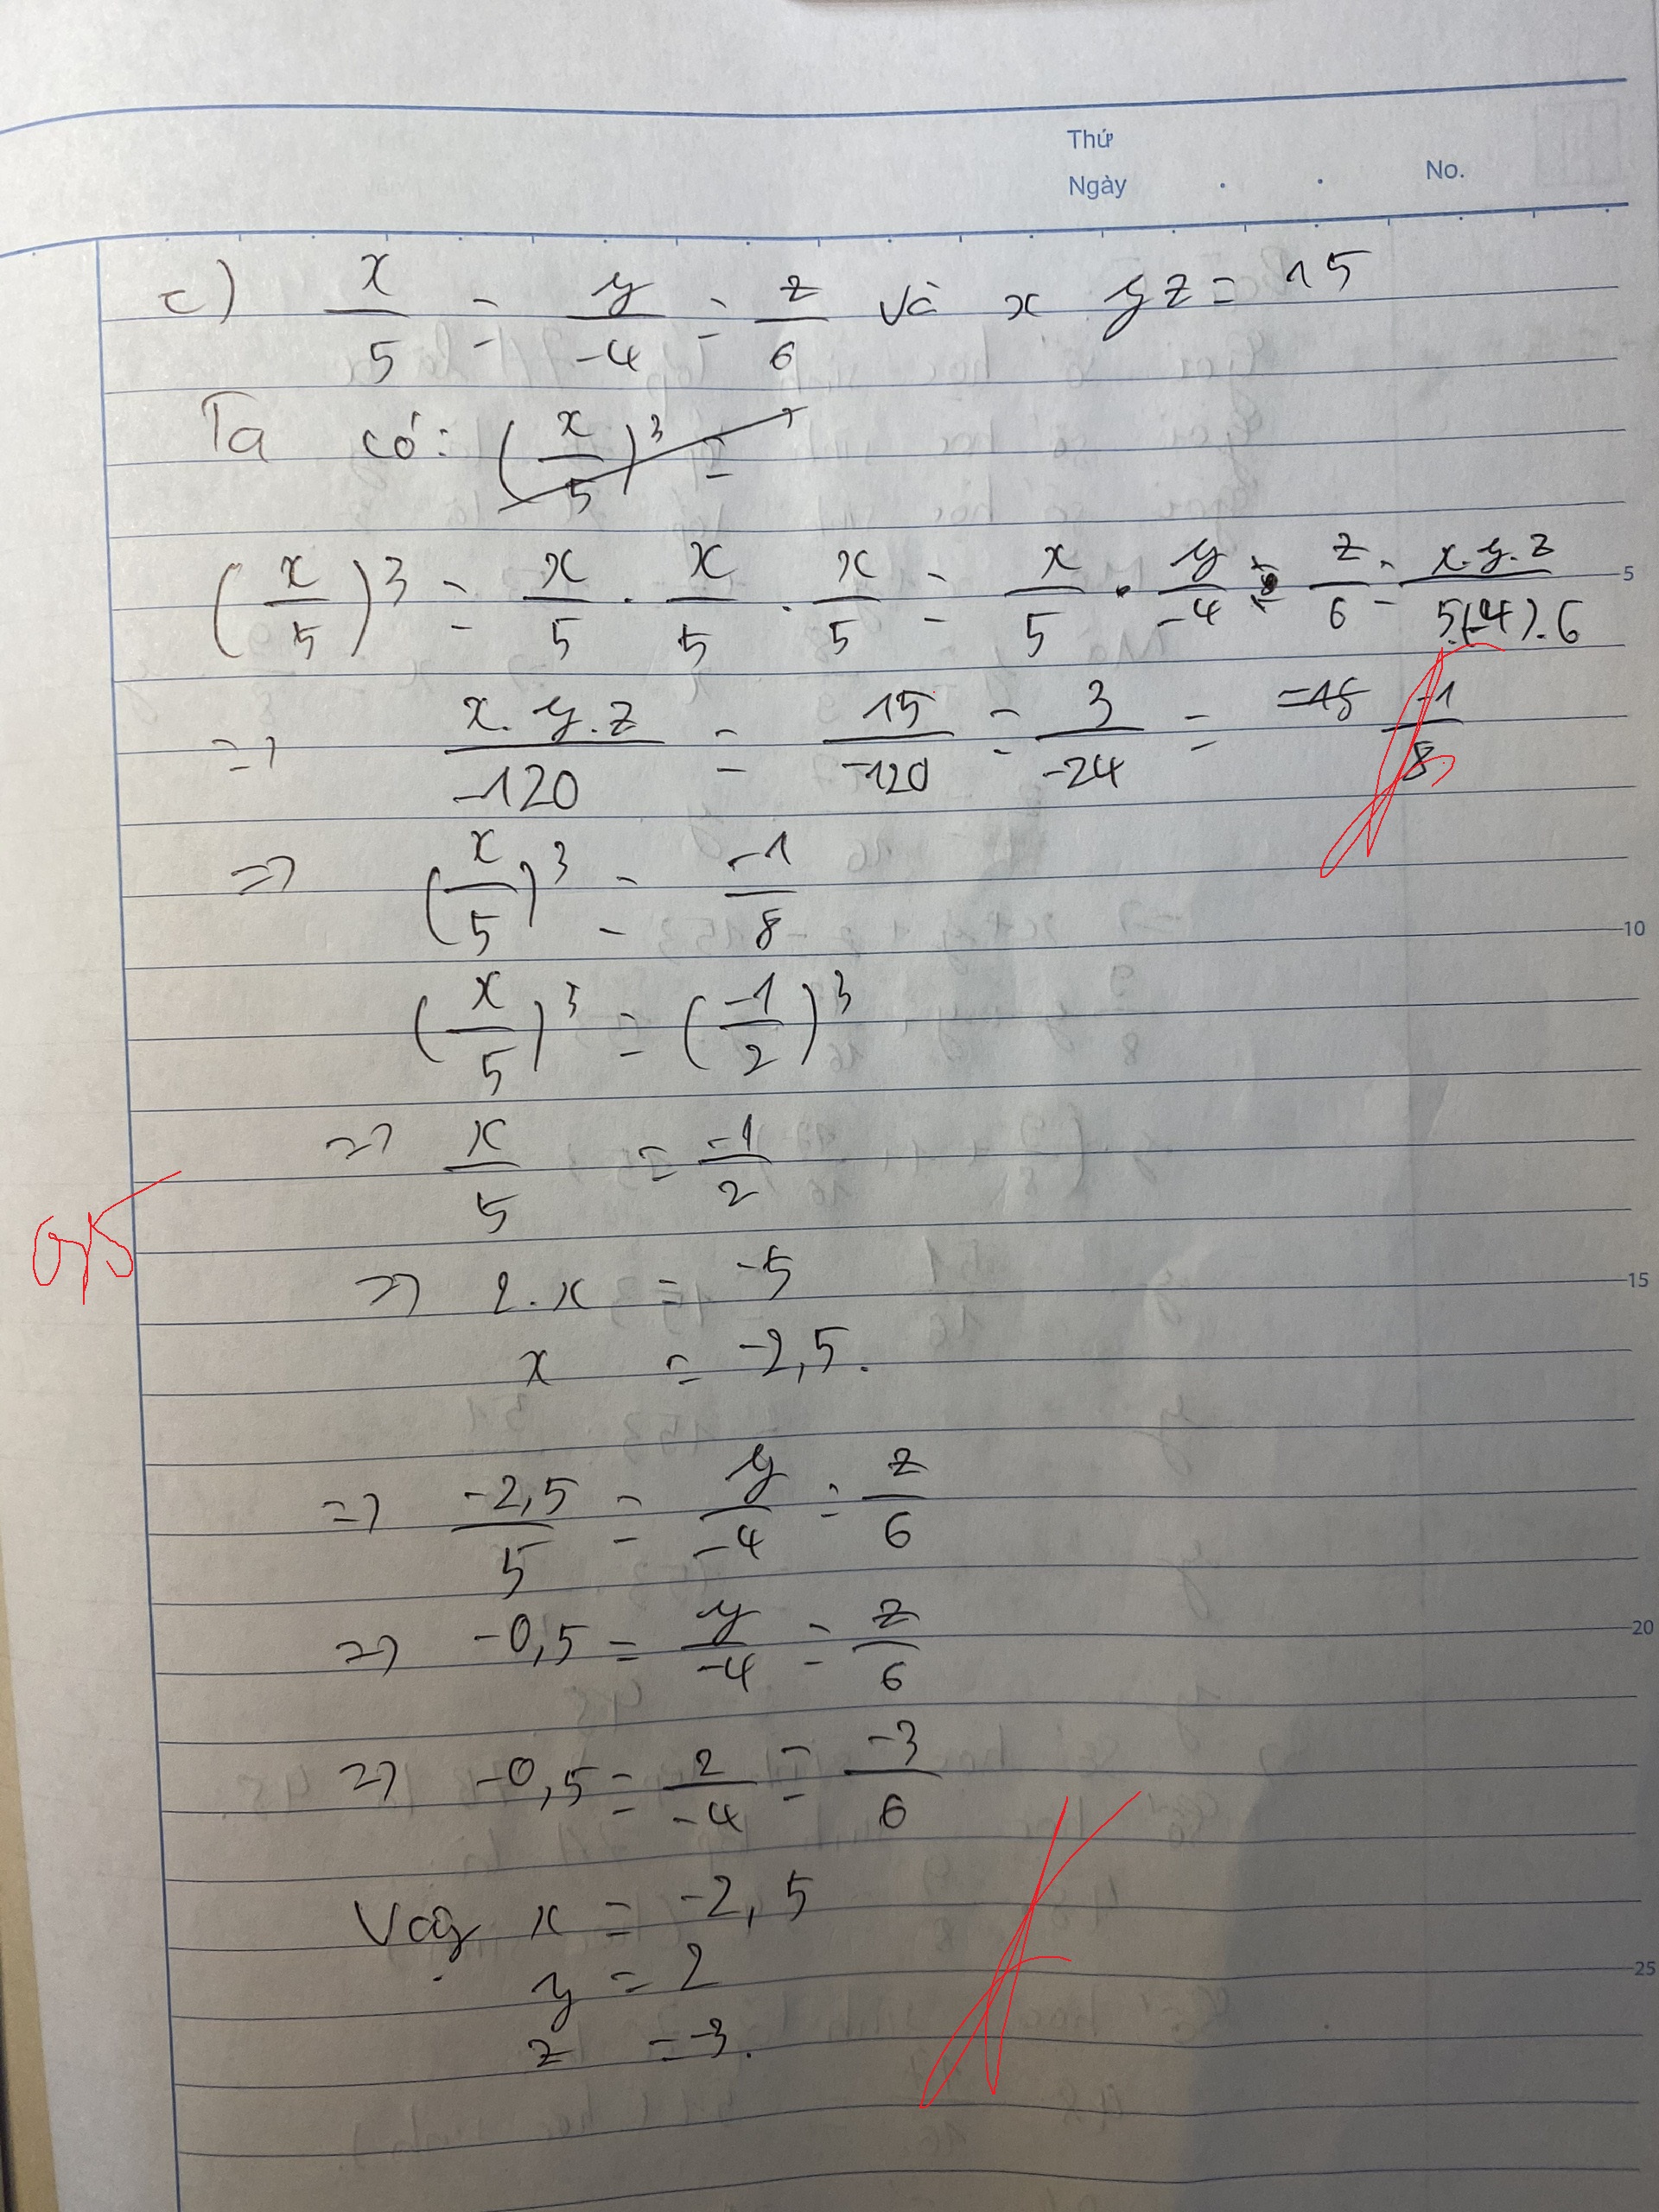 Thứ
Ngày . . No.
c) x/5 = y/-4 = z/6 và x yz = 15
Ta có: (x/5)³ =
(x/5)³ = x/5 . x/5 . x/5 = x/5 . y/-4 . z/6 = x.y.z/5.(-4).6
5
=> x.y.z/-120 = 15/-120 = 3/-24 = -1/8
=> (x/5)³ = -1/8
10
(x/5)³ = (-1/2)³
=> x/5 = -1/2
0,5
=> 2.x = -5
15
x = -2,5.
=> -2,5/5 = y/-4 = z/6
=> -0,5 = y/-4 = z/6
20
=> -0,5 = 2/-4 = -3/6
Vậy x = -2,5
y = 2
25
z = -3.